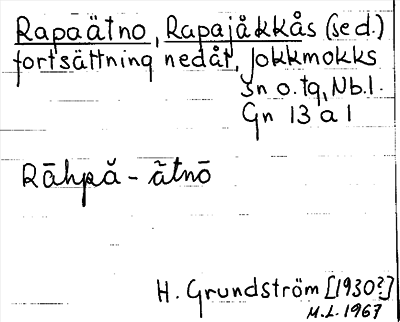 Rapaätno, Rapajåkkås (se d.)
fortsättning nedåt, Jokkmokks
sn o. tg, Nb. l.
Gn 13 a 1
Rāhpǎ - ā̃tnō
H. Grundström [1930?]
M.L. 1967